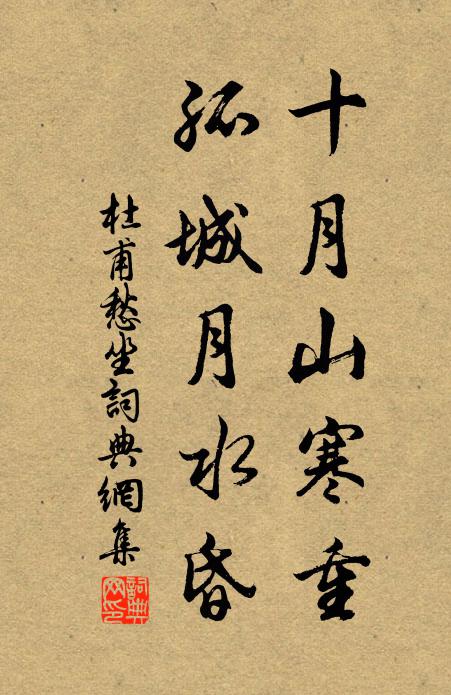 十月山寒重
孤城月水昏
杜甫愁坐詞典網集
詞典网印